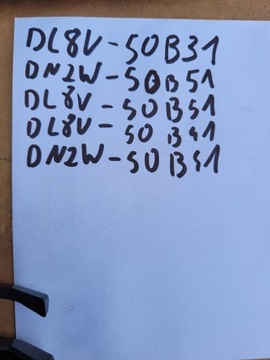 DL8V-50B31
DN2W-50B51
DL8V-50B51
DL8V-50B41
DN2W-50B41